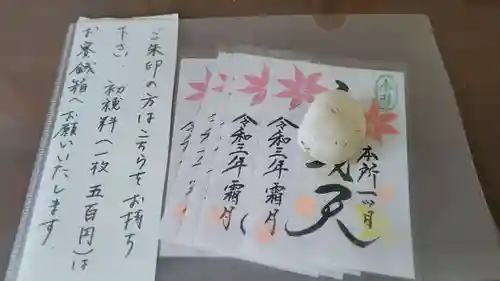 ご朱印の方はこちらをお持ち
下さい。初穂料(一枚五百円)は
お賽銭箱へお願いいたします
令和三年霜月
令和三年霜月
本所一ツ目
天